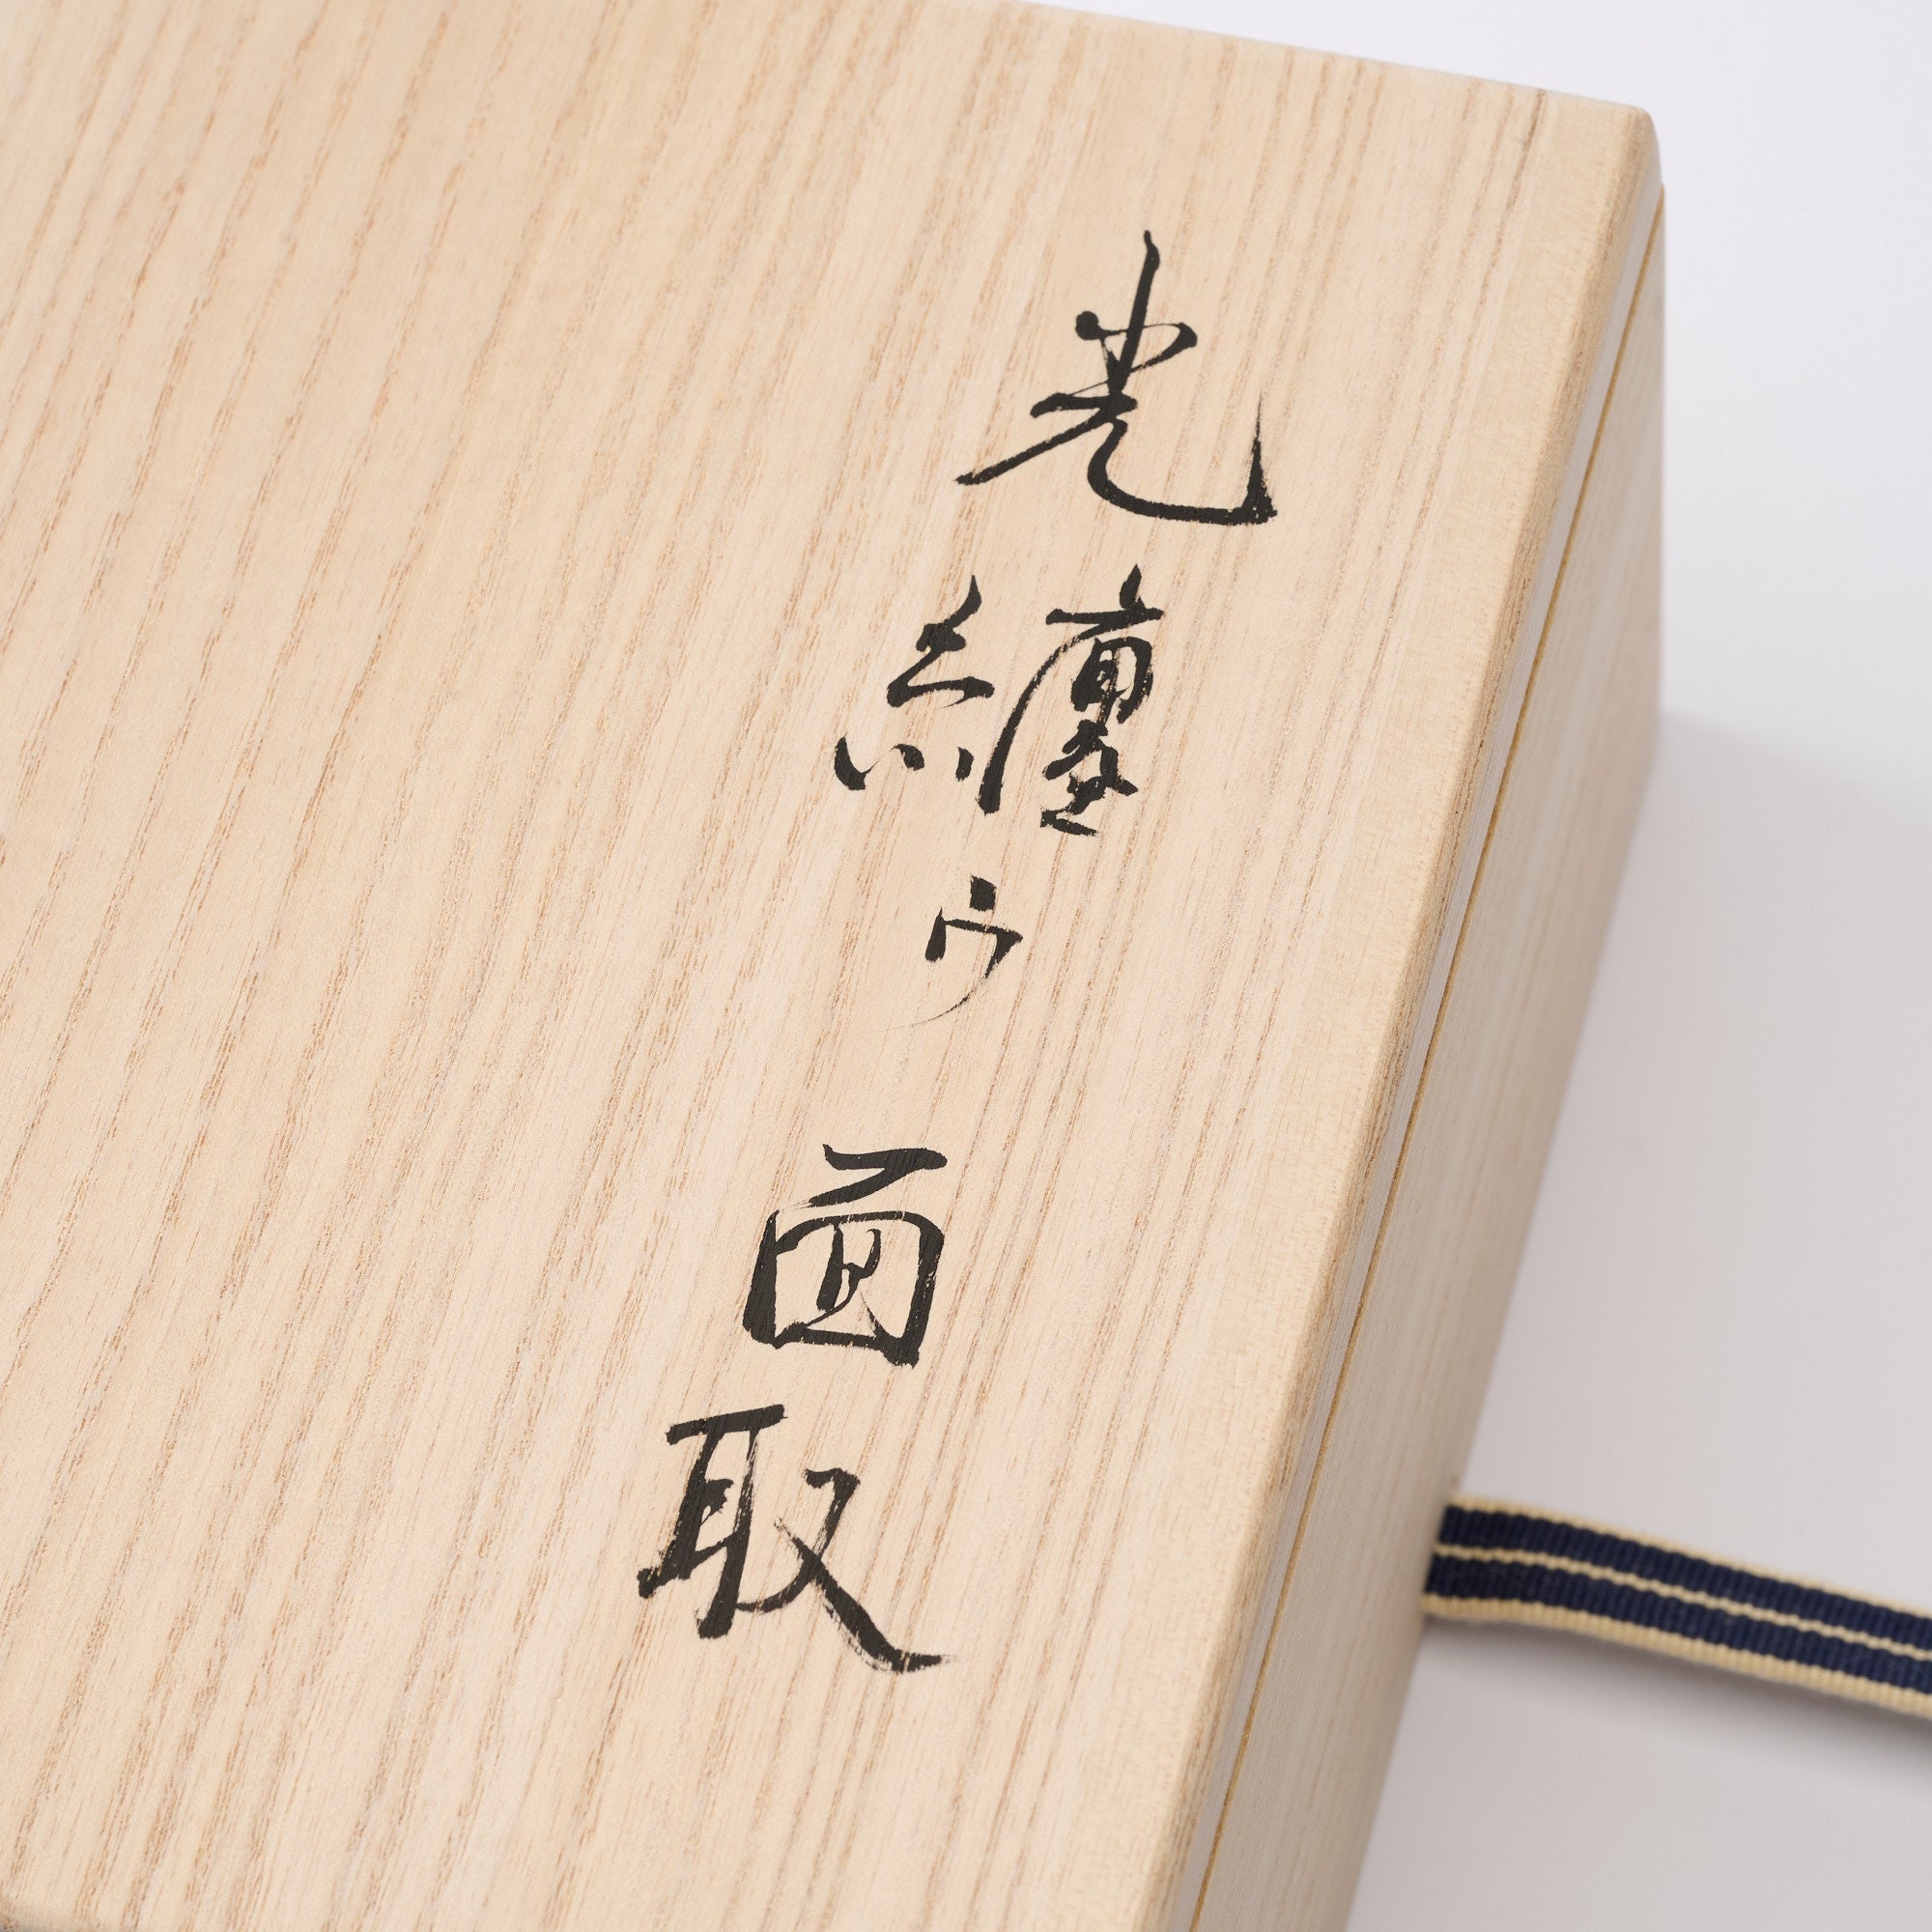 光纏ゥ面取